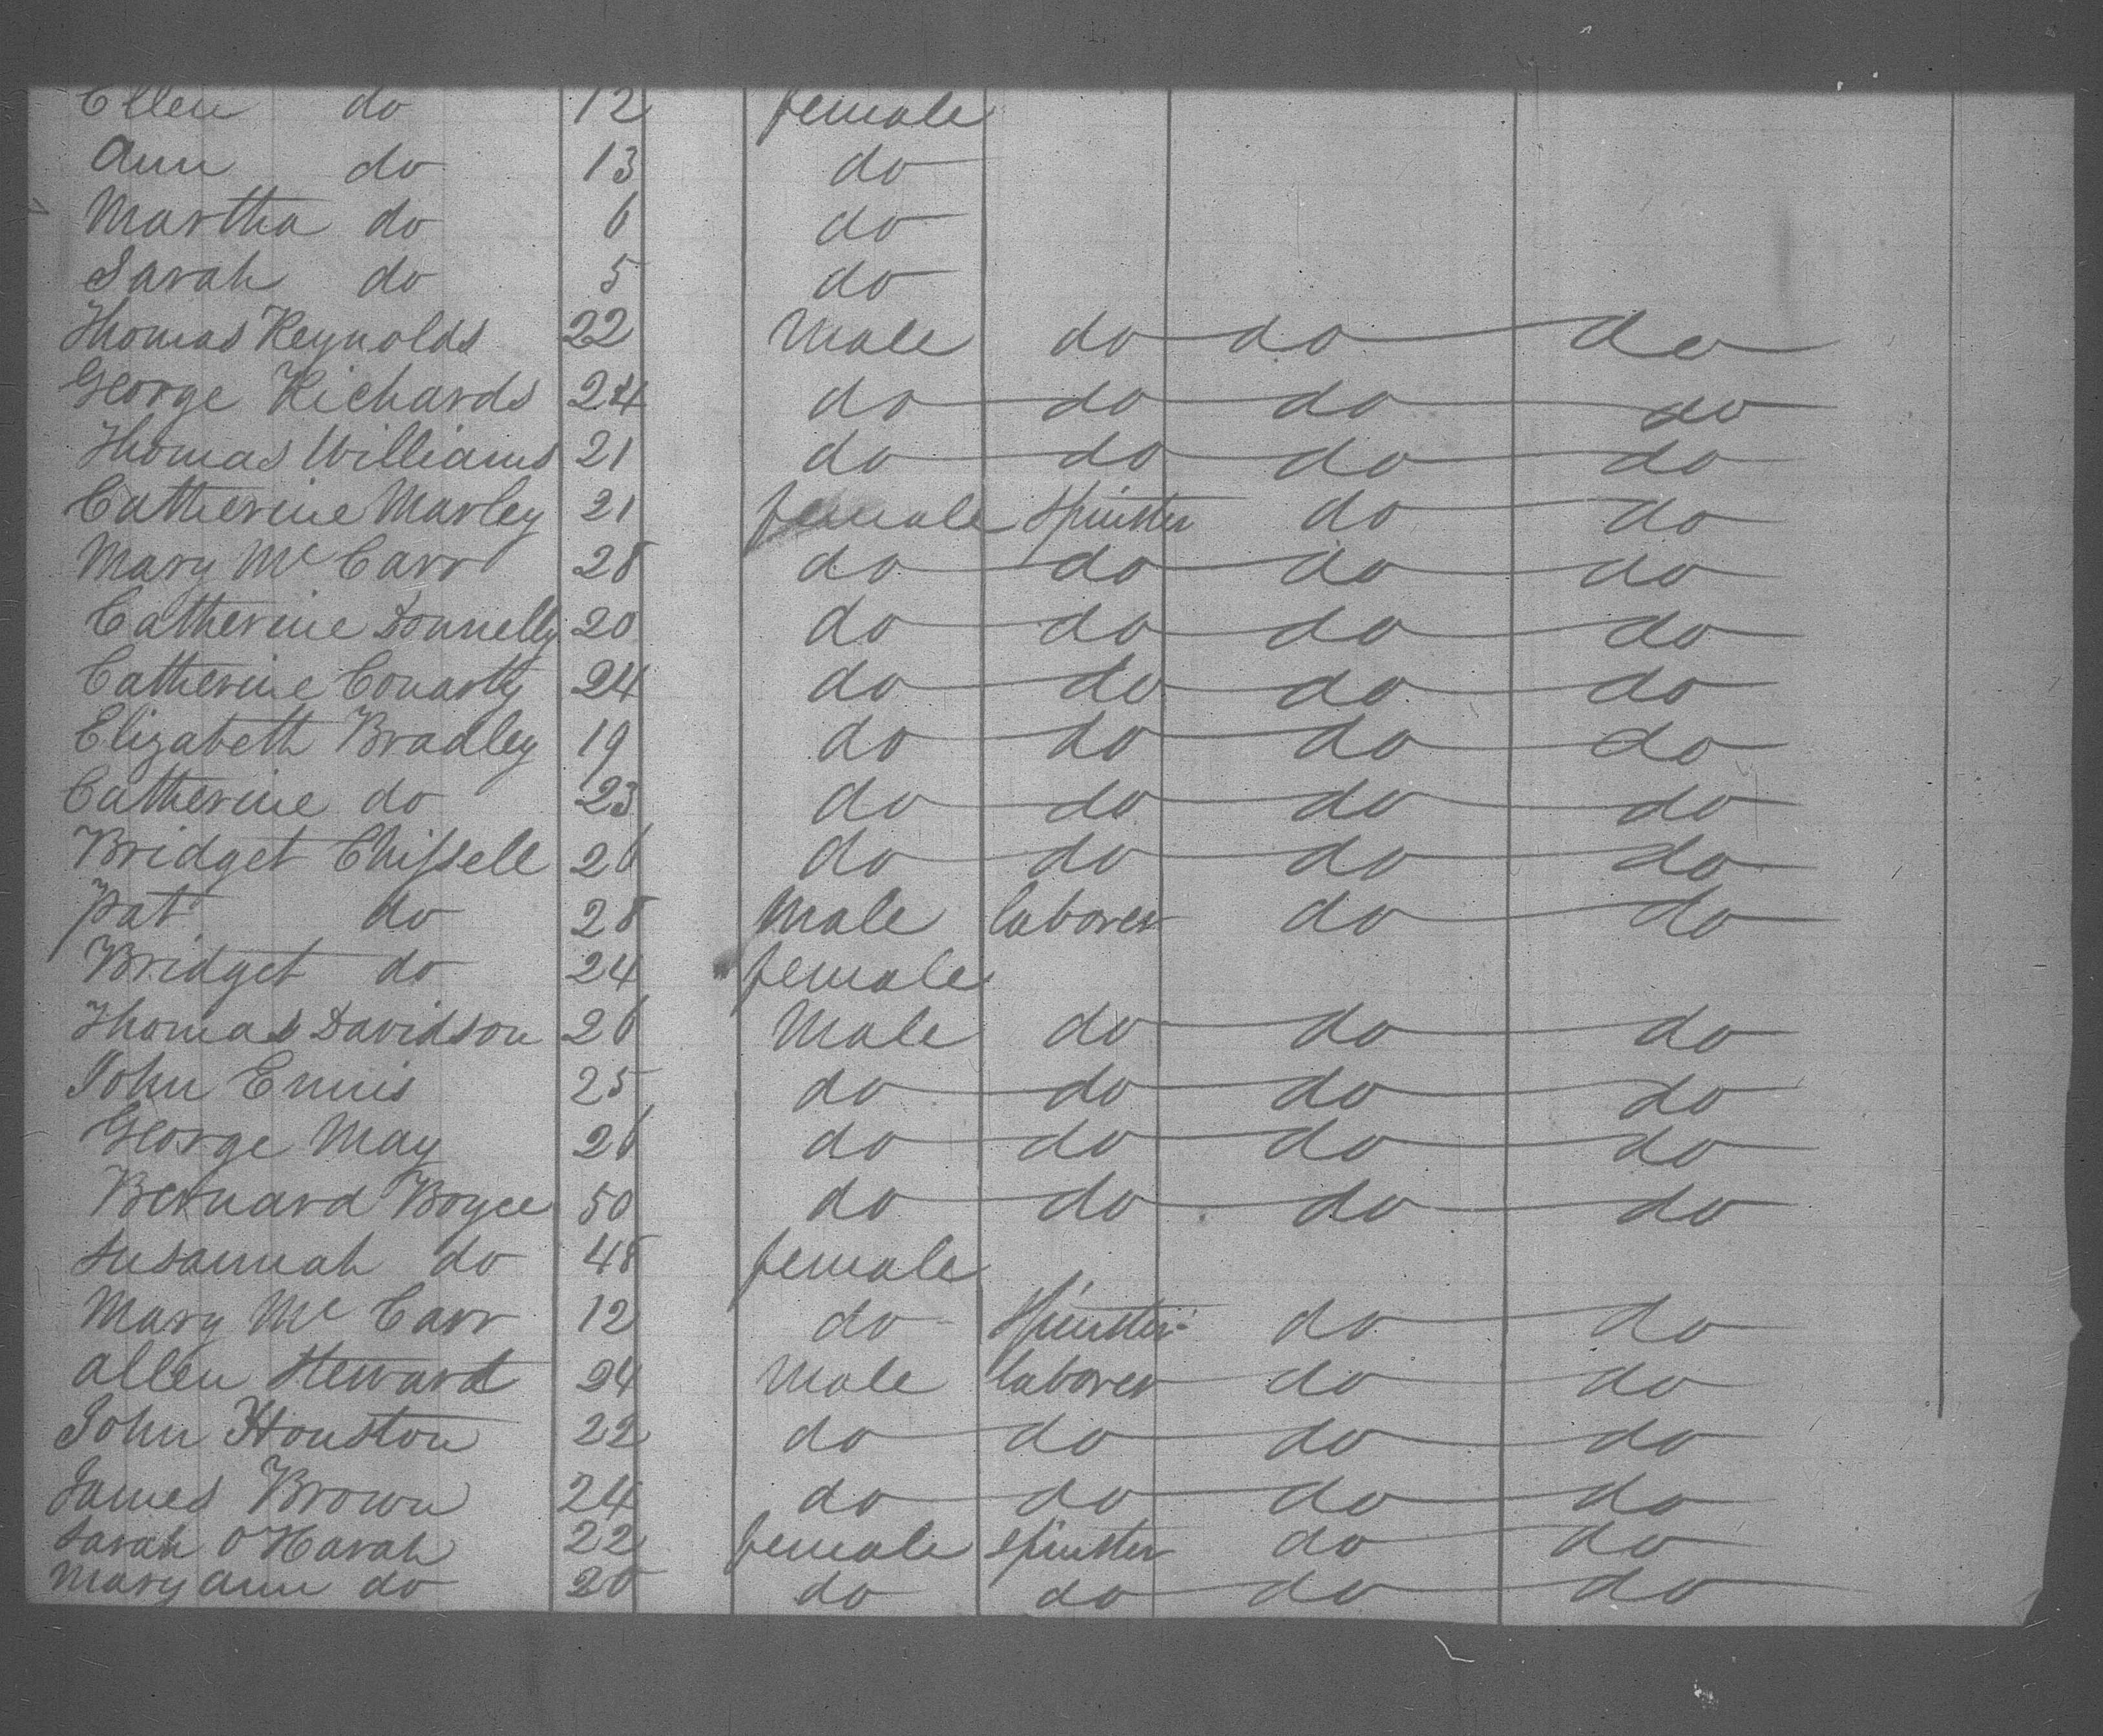 Ellen do 12 female
Ann do 13 do
Martha do 6 do
Sarah do 5 do
Thomas Reynolds 22 Male do do do
George Richards 24 do do do do
Thomas Williams 21 do do do do
Catherine Marley 21 female Spinster do do
Mary Mc Carr 28 do do do do
Catherine Donnelly 20 do do do do
Catherine Conarty 24 do do do do
Elizabeth Bradley 19 do do do do
Catherine do 23 do do do do
Bridget Chissell 26 do do do do
Pat do 28 Male laborer do do
Bridget do 24 female
Thomas Davidson 26 Male do do do
John Ennis 25 do do do do
George May 26 do do do do
Bernard Boyce 50 do do do do
Susannah do 48 female
Mary Mc Carr 12 do Spinster do do
Allen Steward 24 Male laborer do do
John Houston 22 do do do do
James Brown 24 do do do do
Sarah O'Harah 22 female spinster do do
Mary Ann do 20 do do do do